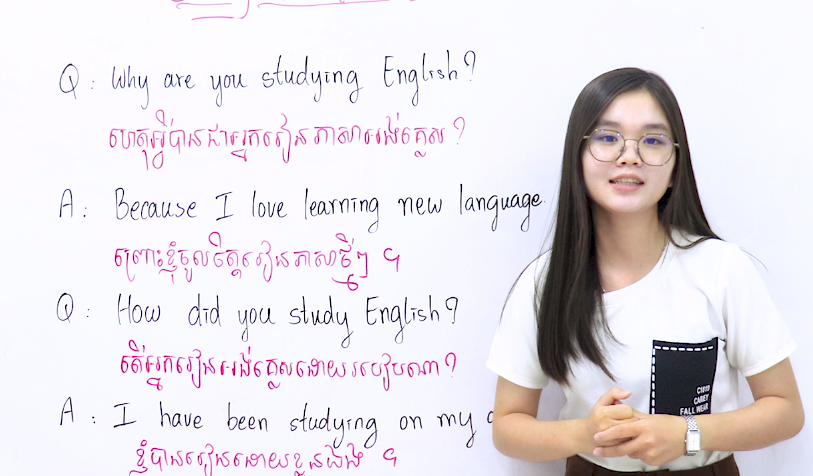 Q : Why are you studying English?
ហេតុអ្វីបានជាអ្នករៀនភាសាអង់គ្លេស ?
A : Because I love learning new language
ព្រោះខ្ញុំចូលចិត្តរៀនភាសាថ្មីៗ ។
Q : How did you study English?
តើអ្នករៀនអង់គ្លេសដោយរបៀបណា ?
A : I have been studying on my
ខ្ញុំបានរៀនដោយខ្លួនឯង ។
CAREY
FALL WEAR